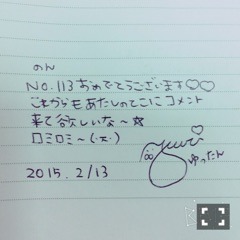 のん
NO.113 おめでてうございます♡♡
これからもあたしのてこにコメント
来て欲しいな〜☆
ロミロミ〜(・π・)
yuri
ゆったん
2015. 2/13